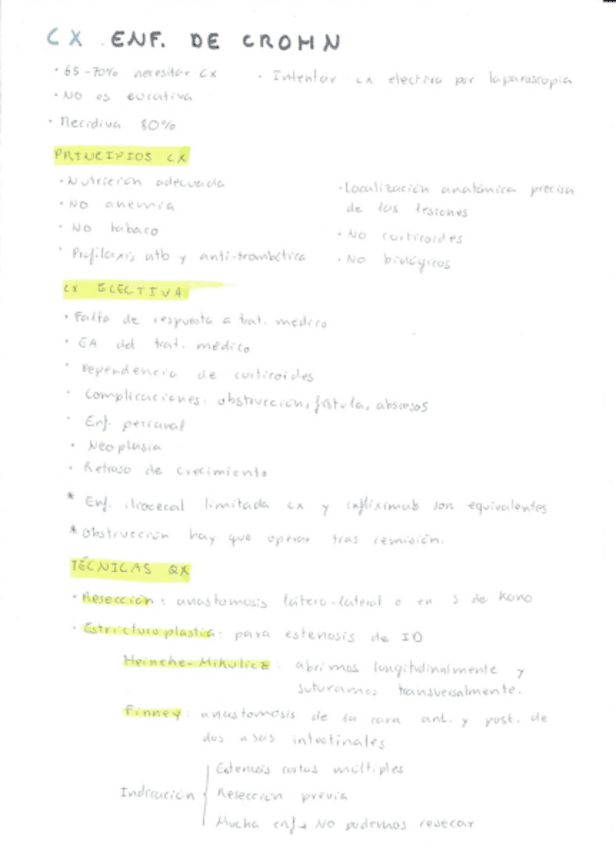 CX ENF. DE CROHN
· 65-70% necesitan CX
· Intentar cx electiva por laparoscopia
· NO es curativa
· Recidiva 80%
PRINCIPIOS CX
· Nutrición adecuada
· NO anemia
· NO tabaco
· Profilaxis atb y anti-trombótica
· Localización anatómica precisa
de las lesiones
· NO corticoides
· NO biológicos
CX ELECTIVA
· Falta de respuesta a trat. médico
· EA del trat. médico
· Dependencia de corticoides
· Complicaciones: obstrucción, fístula, abscesos
· Enf. perianal
· Neoplasia
· Retraso de crecimiento
* Enf. ileocecal limitada cx y infliximab son equivalentes
* Obstrucción hay que operar tras remisión.
TÉCNICAS QX
· Resección: anastomosis látero-lateral o en S de Kono
· Estricturoplastia: para estenosis de ID
Heineke-Mikulicz: abrimos longitudinalmente y
suturamos transversalmente.
Finney: anastomosis de la cara ant. y post. de
dos asas intestinales
Indicación
Estenosis cortas múltiples
Resección previa
Mucha enf → NO podemos resecar